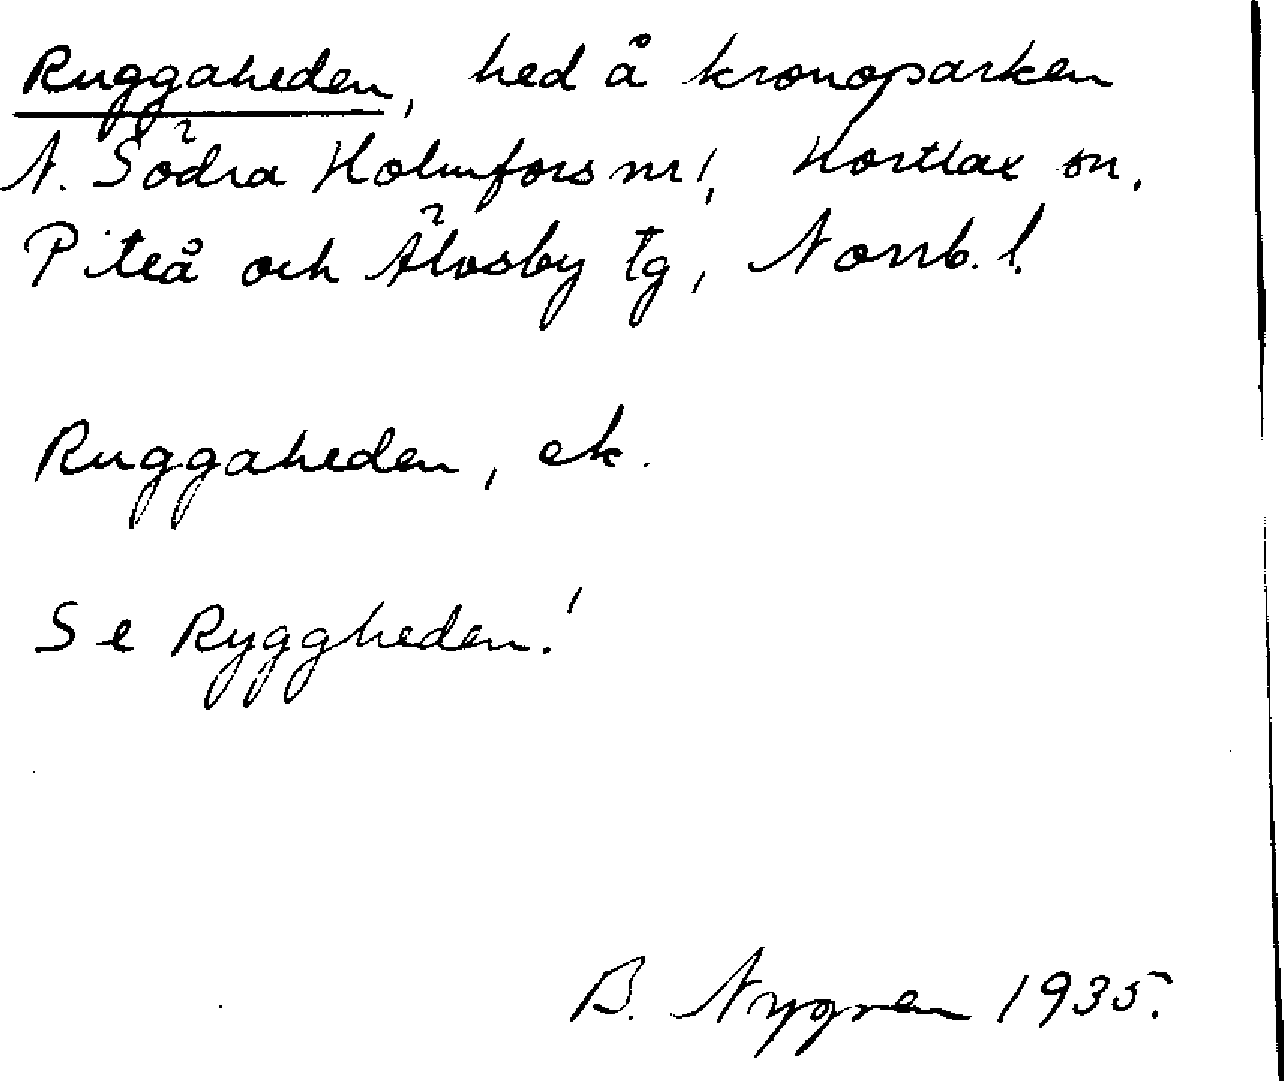 Ruggaheden, hed å kronoparken
N. Södra Holmfors nr 1, Hortlax sn.
Piteå och Älvsby tg, Norrb. l.
Ruggaheden, ek.
Se Ryggheden!
B. Nygren 1935.